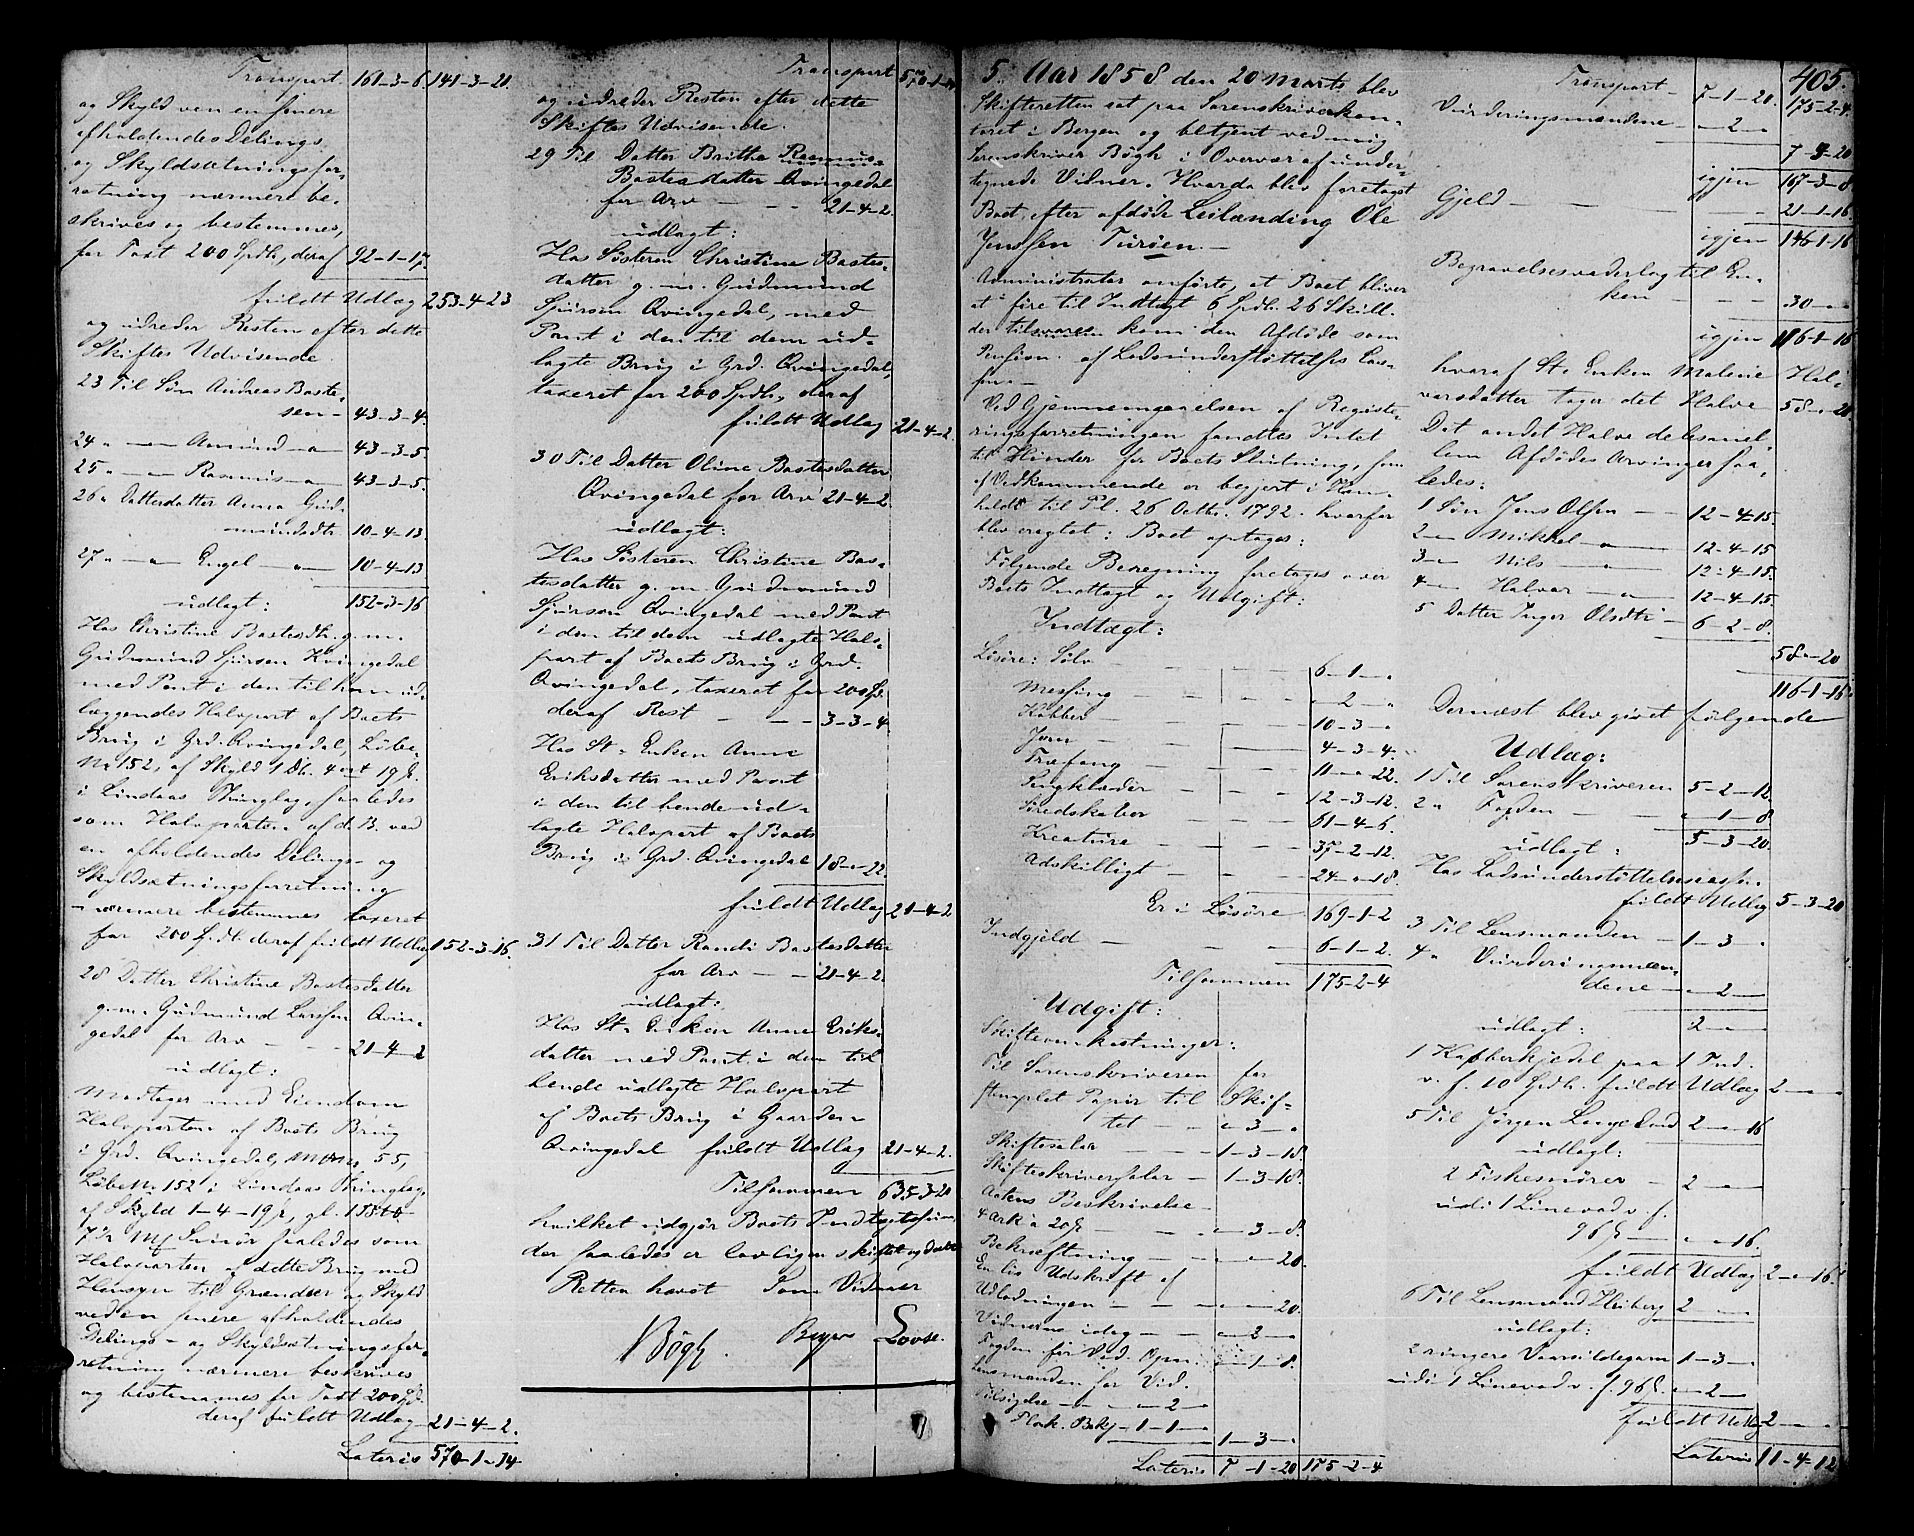 Transport 161-3-6. 141-3-21.
og Skyld ven en senere
afholdendes Delings
og Skyldsætningsfor-
retning nærmere be-
skrives og bestemmes,
for Taxt 200 Spdlr, deraf 92-1-17.
fuldt Udlæg 253-4-23
og udreder Resten efter dette
Skiftes Udvisende.
23 Til Søn Andreas Baste-
sen - 43-3-4.
24 " — Aamund —"— 43-3-5
25 " — Rasmus —"— 43-3-5.
26 " Datterdatter Anna Gud-
mundsdtr 10-4-13
27 " —"— Engel —"— 10-4-13
udlagt: 152-3-16
Hos Christine Bastesdtr. g. m.
Gudmund Sjursen Kvingedal
med Pant i den til ham ud-
læggendes Halvpart af Boets
Brug i Grd. Qvingedal, Løbe-
No 152, af Skyld 1 Dlr. 4 ort 19 ß.
i Lindaas Thinglag, saaledes
som Halvparten af d. B. ved
en afholdendes Delings- og
Skyldsætningsforretning
nærmere bestemmes taxeret
for 200 Spdlr. deraf fuldt Udlæg 152-3-16.
28 Datter Christine Bastesdatter
g. m. Gudmund Larssen Qvin-
gedal for Arv — 21-4-2
udlagt:
Modtager med Eiendom
Halvparten af Boets Brug
i Grd. Qvingedal, MNo 55,
Løbe No 152 i Lindaas Thinglag,
af Skyld 1-4-19 ß,
saaledes som
Halvparten af dette Brug med
Hensyn til Grændser og Skyld
ved en senere afholdendes
Delings- og Skyldsætningsfor-
retning nærmere beskrives
og bestemmes for Taxt 200 Spd.
deraf fuldt Udlæg 21-4-2.
Lateris 570-1-14
Transport 570-1-14
og udreder Resten efter dette
Skiftes Udvisende.
29 Til Datter Britha Rasmus-
Bastesdatter Qvingedal
for Arv — 21-4-2.
udlagt:
Hos Søsteren Christine Bastes-
datter g. m. Gudmund
Sjursen Qvingedal, med
Pant i den til dem ud-
lagte Brug i Grd. Qvingedal,
taxeret for 200 Spdlr, deraf
fuldt Udlæg 21-4-2.
30 Til Datter Oline Bastesdatter
Qvingedal for Arv 21-4-2.
udlagt:
Hos Søsteren Christine Bas-
tesdatter g. m. Gudmund
Sjursen Qvingedal med Pant
i den til dem udlagte Halv-
part af Boets Brug i Grd.
Qvingedal, taxeret for 200 Sp.
deraf Rest — 3-3-4.
Hos St. Enken Anne
Eriksdatter med Pant
i den til hende ud-
lagte Halvpart af Boets
Brug i Grd. Qvingedal 18-"-22.
fuldt Udlæg 21-4-2
31 Til Datter Randi Bastesdatter
for Arv — 21-4-2.
udlagt:
Hos St. Enken Anne Eriks-
datter med Pant i den til
hende udlagte Halvpart
af Boets Brug i Gaarden
Qvingedal fuldt Udlæg 21-4-2.
Tilsammen 635-3-20
hvilket udgjør Boets Indtægtssum,
der saaledes er lovligen skiftet og deelt
Retten hævet Som Vidner
Bøgh. Beyer Lovse.
5. Aar 1858 den 20 Marts blev
Skifteretten sat paa Sorenskriverkon-
toret i Bergen og betjent ved mig
Sorenskriver Bøgh i Overvær af under-
tegnede Vidner. Hvorda blev foretaget
Boet efter afdøde Leilænding Ole
Jenssen Turøen. —
Administrator anførte, at Boet bliver
at føre til Indtægt 6 Spdlr. 26 Skill.
der tilkom den Afdøde som
Pension af Lodsunderstøttelses Cas-
sen —
Ved Gjennemgaaelsen af Registe-
ringsforretningen fandtes Intet
til Hinder for Boets Slutning, som
af Vedkommende er begjert i Hen-
hold til Pl. 26 Octbr. 1792. hvorfor
blev eragtet: Boet optages:
Følgende Beregning foretages over
Boets Indtægt og Udgift:
Indtægt:
Løsøre: Sølv — 6-1-"
Messing — "-2-"
Kobber — 10-3-"
Jern — 4-3-4.
Træfang — 11-"-22.
Sengklæder — 12-3-12.
Søredskaber — 61-4-6.
Kreature — 37-2-12.
Adskilligt — 24-"-18.
Er i Løsøre 169-1-2
Indgjeld — 6-1-2.
Tilsammen 175-2-4
Udgift:
Skifteomkostninger:
Til Sorenskriveren for
stemplet Papir til Skif-
tet — "-3-"
Skiftesalær — 1-3-18.
Skifteskriversalær — 1-3-18.
Actens Beskrivelse
4 Ark à 20 ß — "-3-8.
Bekræftning — "-"-20.
En lis Udskrift af
Udlodningen — "-"-20.
Vidnerne idag — "-2-"
Fogden for Vid. Opn. "-1-8.
Lensmanden for Vid.
Tilsigelse — "-2-"
Flork. Bekj — 1-1-"
1-3-"
Lateris 7-1-20 175-2-4
405.
Transport 7-1-20. 175-2-4.
Vurderingsmændene "-2-"
7-3-20
igjen 167-3-8
Gjeld — 21-1-16.
igjen 146-1-16
Begravelsesvederlag til En-
ken — 30-"-"
igjen 116-1-16
hvoraf St. Enken Malene Hal-
varsdatter tager det Halve 58-"-20.
Det andet Halve deles mel-
lem Afdødes Arvinger saa-
ledes:
1 Søn Jens Olsen — 12-4-15.
2 —"— Mikkel —"— 12-4-15
3 —"— Nils —"— 12-4-15.
4 —"— Halvor —"— 12-4-15.
5 Datter Inger Olsdtr — 6-2-8.
58-"-20
116-1-16.
Dernæst blev givet følgende
Udlæg:
1 Til Sorenskriveren 5-2-12.
2 " Fogden — "-1-8
udlagt: 5-3-20.
Hos Lodsunderstøttelsescassen
fuldt Udlæg 5-3-20
3 Til Lensmanden — 1-3-"
4 " Vurderingsmæn-
dene — "-2-"
udlagt: 2-"-"
1 Kobberkjedel paa 1 Tnd.
v. f. 10 Spdlr. fuldt Udlæg 2-"-"
5 Til Jørgen 2-"-16
udlagt:
2 Fiskesnører — 2-"-"
udi 1 Linevad v. f.
96 ß — "-"-16.
fuldt Udlæg 2-"-16.
6 Til Lensmand Heiberg 2-"-"
udlagt:
2 ringere Vaarsildegarn 1-3-"
udi 1 Linevad v. f. 96 ß. "-2-"
fuldt Udlæg 2-"-"
Lateris 11-4-12